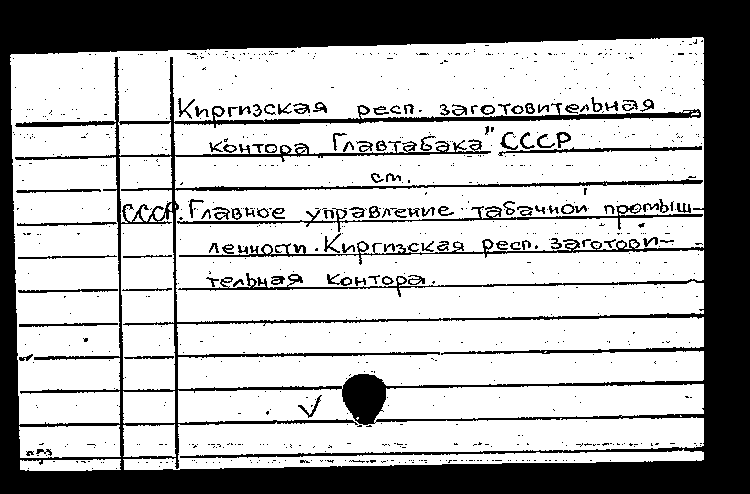 Киргизская респ. заготовительная
контора „Главтабака" СССР
см.
СССР. Главное управление табачной промыш-
ленности. Киргизская респ. заготови-
тельная контора.